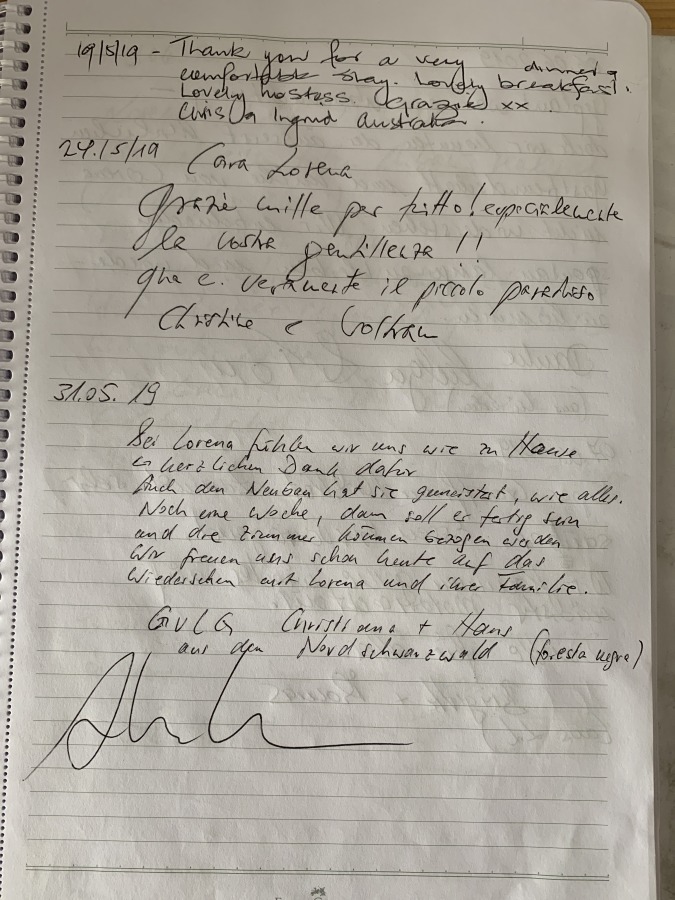 19/5/19 - Thank you for a very dinner &
comfortable stay. Lovely breakfast.
Lovely hostess. Grazie xx
Chris & Ingrid Australia.
24.5/19 Cara Lorena
Grazie mille per tutto! especialemente
la vostra gentillezza !!
qua e. veramente il piccolo paradiso
Christine e
31.05.19
Bei Lorena fühlen wir uns wie zu Hause
herzlichen Dank dafür
Auch den Neubau hat sie gemeistert, wie alles.
Noch eine Woche, dann soll er fertig sein
und die Zimmer können bezogen werden
Wir freuen uns schon heute auf das
Wiedersehen mit Lorena und ihrer Familie.
GVLG Christiane + Hans
aus dem Nordschwarzwald (foresta negra)